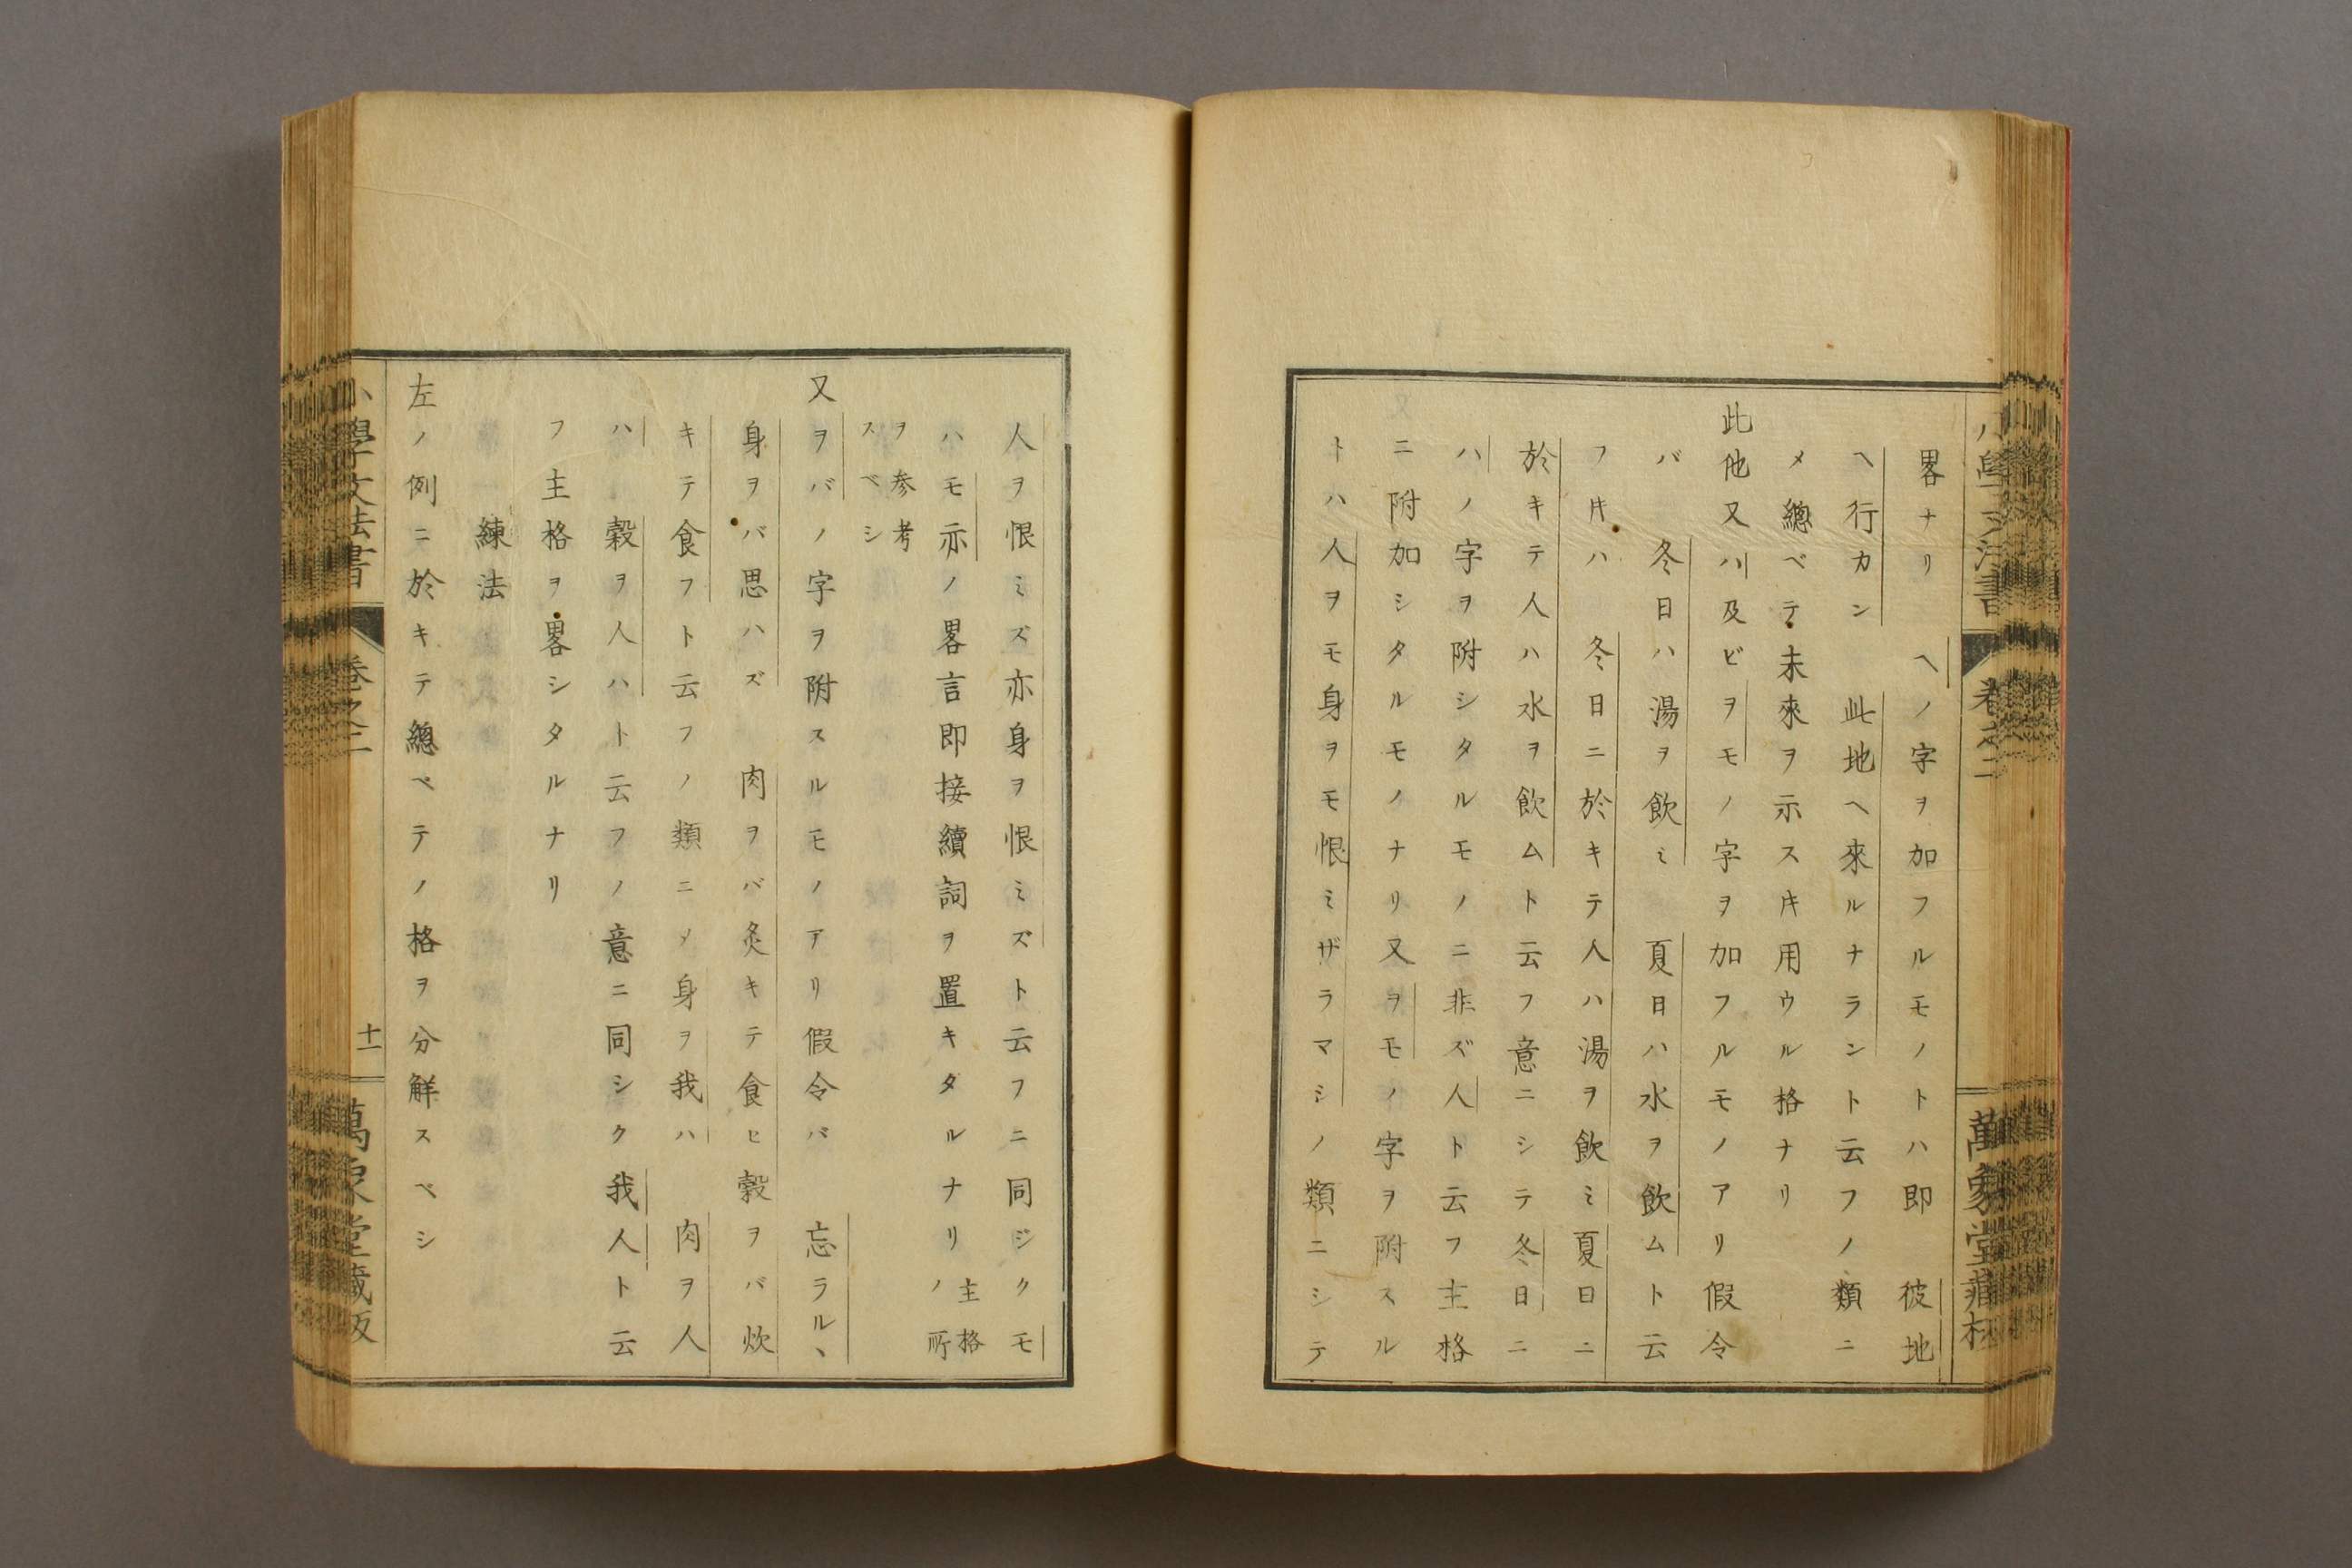 畧ナリ　ヘノ字ヲ加フルモノトハ即　彼地
ヘ行カン　此地ヘ來ルナラント云フノ類ニ
メ總ベテ未來ヲ示スキ用ウル格ナリ
此他又ハ及ビヲモノ字ヲ加フルモノアリ假令
バ　冬日ハ湯ヲ飮ミ　夏日ハ水ヲ飮ムト云
フキハ　冬日ニ於キテ人ハ湯ヲ飮ミ夏日ニ
於キテ人ハ水ヲ飮ムト云フ意ニシテ冬日ニ
ハノ字ヲ附シタルモノニ非ズ人ト云フ主格
ニ附加シタルモノナリ又ヲモノ字ヲ附スル
トハ人ヲモ身ヲモ恨ミザラマシノ類ニシテ
人ヲ恨ミズ亦身ヲ恨ミズト云フニ同ジクモ
ハモ亦ノ畧言即接續詞ヲ置キタルナリ主格ノ所
ヲ参考スベシ
又ヲバノ字ヲ附スルモノアリ假令バ　忘ラルヽ
身ヲバ思ハズ　肉ヲバ炙キテ食ヒ穀ヲバ炊
キテ食フト云フノ類ニメ身ヲ我ハ　肉ヲ人
ハ　穀ヲ人ハト云フノ意ニ同シク我人ト云
フ主格ヲ畧シタルナリ
練法
左ノ例ニ於キテ總ベテノ格ヲ分解スベシ
小學文法書
卷之二
十一
萬象堂藏版